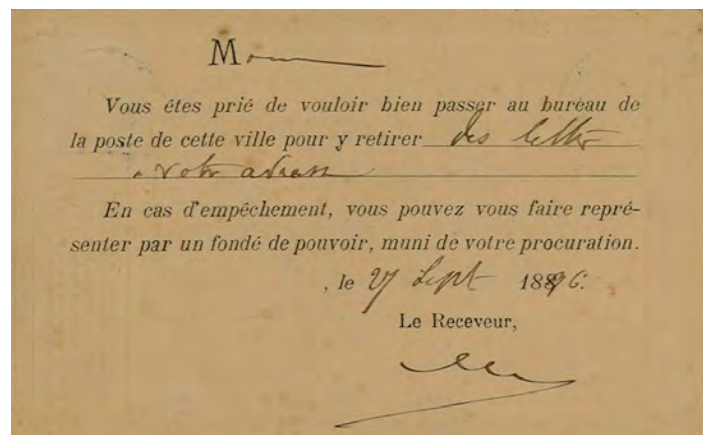 M
Vous êtes prié de vouloir bien passer au bureau de
la poste de cette ville pour y retirer des lettres
à votre adresse
En cas d'empêchement, vous pouvez vous faire repré-
senter par un fondé de pouvoir, muni de votre procuration.
, le 27 Sept 1896.
Le Receveur,